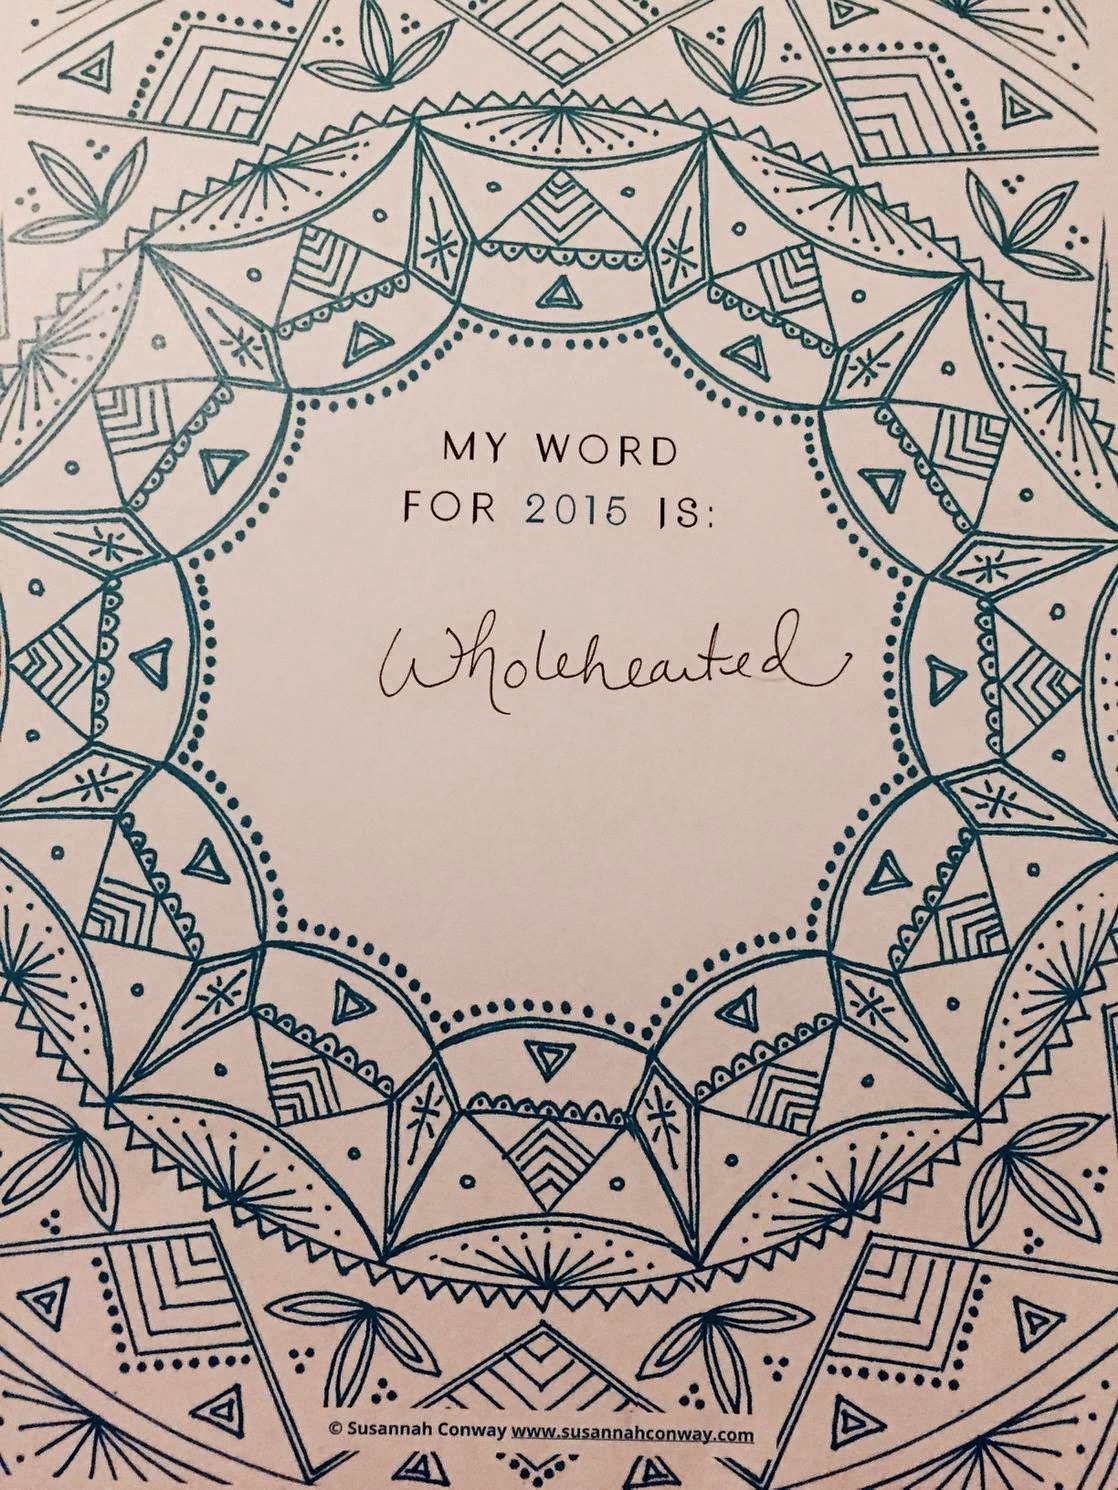 MY WORD
FOR 2015 IS:
Wholehearted
© Susannah Conway www.susannahconway.com